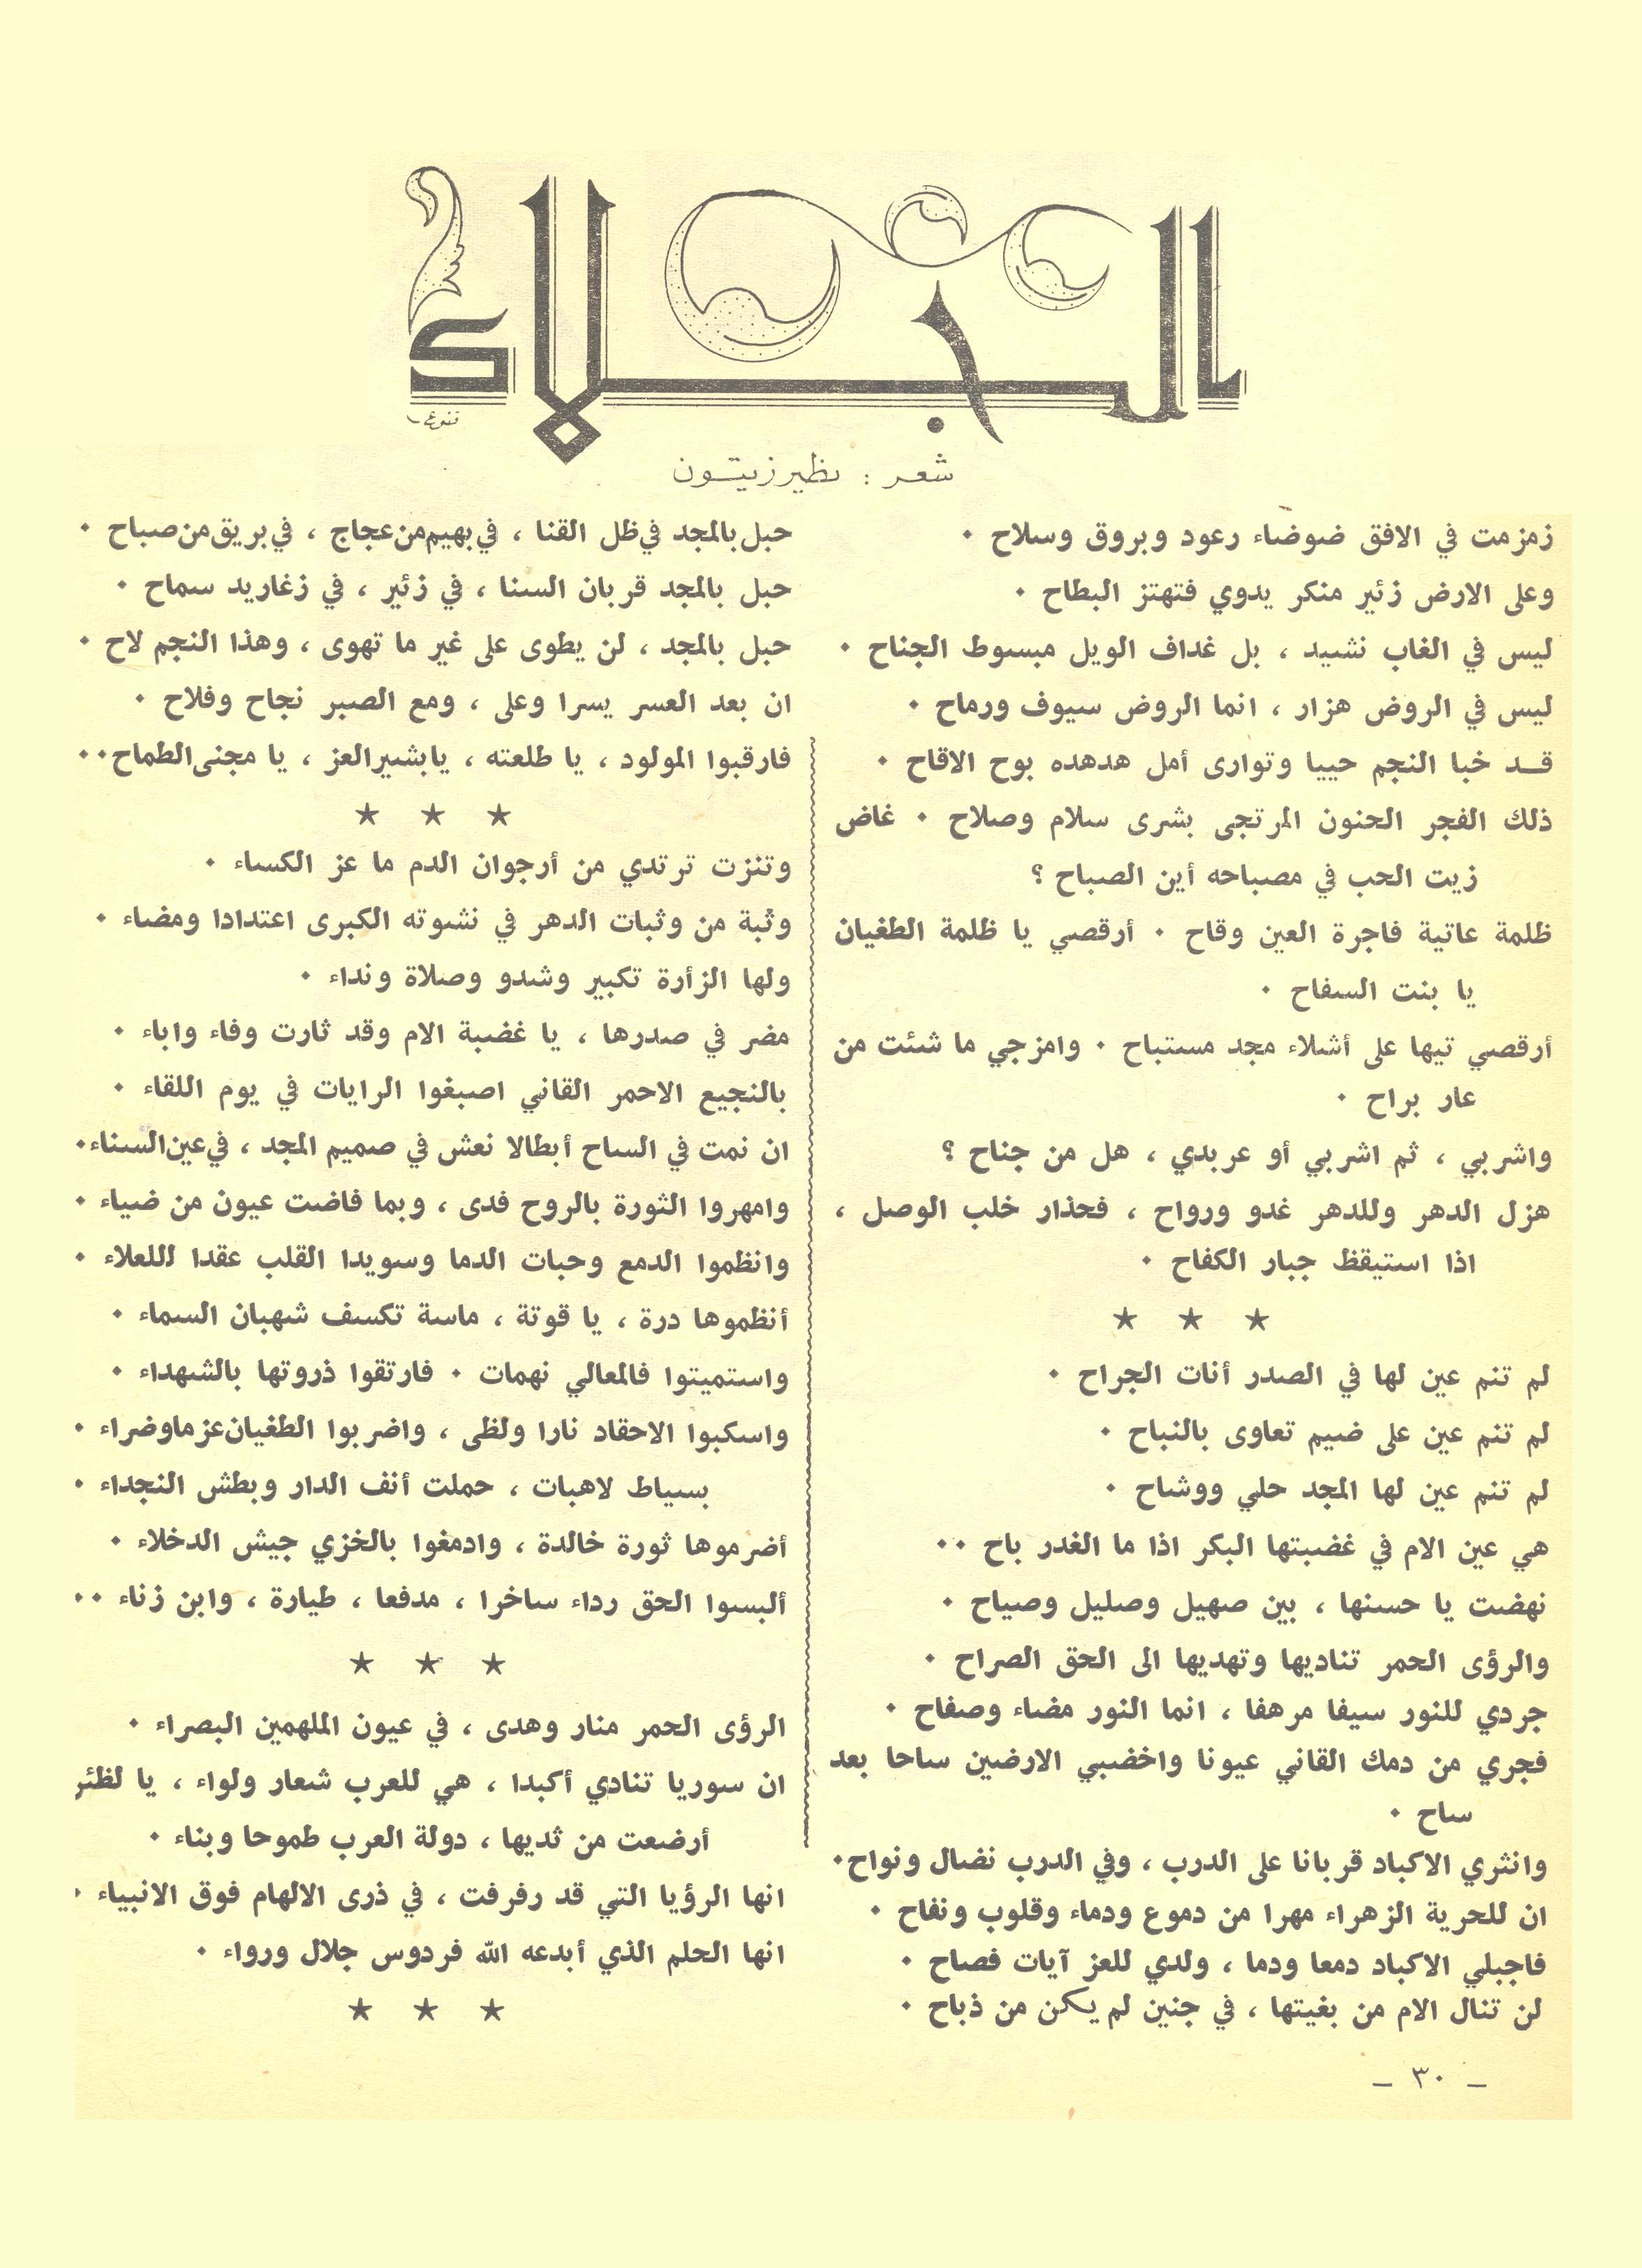 الجلاء
شعر : نظير زيتون
زمزمت في الافق ضوضاء رعود وبروق وسلاح ٠
وعلى الارض زئير منكر يدوي فتهتز البطاح ٠
ليس في الغاب نشيد ، بل غداف الويل مبسوط الجناح ٠
ليس في الروض هزار ، انما الروض سيوف ورماح ٠
قد خبا النجم حييا وتوارى أمل هدهده بوح الاقاح ٠
ذلك الفجر الحنون المرتجى بشرى سلام وصلاح ٠ غاض
زيت الحب في مصباحه أين الصباح ؟
ظلمة عاتية فاجرة العين وقاح ٠ أرقصي يا ظلمة الطغيان
يا بنت السفاح ٠
أرقصي تيها على أشلاء مجد مستباح ٠ وامزجي ما شئت من
عار براح ٠
واشربي ، ثم اشربي أو عربدي ، هل من جناح ؟
هزل الدهر وللدهر غدو ورواح ، فحذار خلب الوصل ،
اذا استيقظ جبار الكفاح ٠
★ ★ ★
لم تنم عين لها في الصدر أنات الجراح ٠
لم تنم عين على ضيم تعاوى بالنباح ٠
لم تنم عين لها المجد حلي ووشاح ٠
هي عين الام في غضبتها البكر اذا ما الغدر باح ٠٠
نهضت يا حسنها ، بين صهيل وصليل وصياح ٠
والرؤى الحمر تناديها وتهديها الى الحق الصراح ٠
جردي للنور سيفا مرهفا ، انما النور مضاء وصفاح ٠
فجري من دمك القاني عيونا واخضبي الارضين ساحا بعد
ساح ٠
وانثري الاكباد قربانا على الدرب ، وفي الدرب نضال ونواح٠
ان للحرية الزهراء مهرا من دموع ودماء وقلوب ونفاح ٠
فاجبلي الاكباد دمعا ودما ، ولدي للعز آيات فصاح ٠
لن تنال الام من بغيتها ، في جنين لم يكن من ذباح ٠
حبل بالمجد في ظل القنا ، في بهيم من عجاج ، في بريق من صباح ٠
حبل بالمجد قربان السنا ، في زئير ، في زغاريد سماح ٠
حبل بالمجد ، لن يطوى على غير ما تهوى ، وهذا النجم لاح ٠
ان بعد العسر يسرا وعلى ، ومع الصبر نجاح وفلاح ٠
فارقبوا المولود ، يا طلعته ، يا بشير العز ، يا مجنى الطماح٠٠
★ ★ ★
وتنزت ترتدي من أرجوان الدم ما عز الكساء ٠
وثبة من وثبات الدهر في نشوته الكبرى اعتدادا ومضاء ٠
ولها الزأرة تكبير وشدو وصلاة ونداء ٠
مضر في صدرها ، يا غضبة الام وقد ثارت وفاء واباء ٠
بالنجيع الاحمر القاني اصبغوا الرايات في يوم اللقاء ٠
ان نمت في الساح أبطالا نعش في صميم المجد ، في عين السناء٠
وامهروا الثورة بالروح فدى ، وبما فاضت عيون من ضياء ٠
وانظموا الدمع وحبات الدما وسويدا القلب عقدا للعلاء ٠
أنظموها درة ، يا قوتة ، ماسة تكسف شهبان السماء ٠
واستميتوا فالمعالي نهمات ٠ فارتقوا ذروتها بالشهداء ٠
واسكبوا الاحقاد نارا ولظى ، واضربوا الطغيان عزما وضراء ٠
بسياط لاهبات ، حملت أنف الدار وبطش النجداء ٠
أضرموها ثورة خالدة ، وادمغوا بالخزي جيش الدخلاء ٠
ألبسوا الحق رداء ساخرا ، مدفعا ، طيارة ، وابن زناء ٠٠
★ ★ ★
الرؤى الحمر منار وهدى ، في عيون الملهمين البصراء ٠
ان سوريا تنادي أكبدا ، هي للعرب شعار ولواء ، يا لظئر
أرضعت من ثديها ، دولة العرب طموحا وبناء ٠
انها الرؤيا التي قد رفرفت ، في ذرى الالهام فوق الانبياء ٠
انها الحلم الذي أبدعه الله فردوس جلال ورواء ٠
★ ★ ★
– ٣٠ –